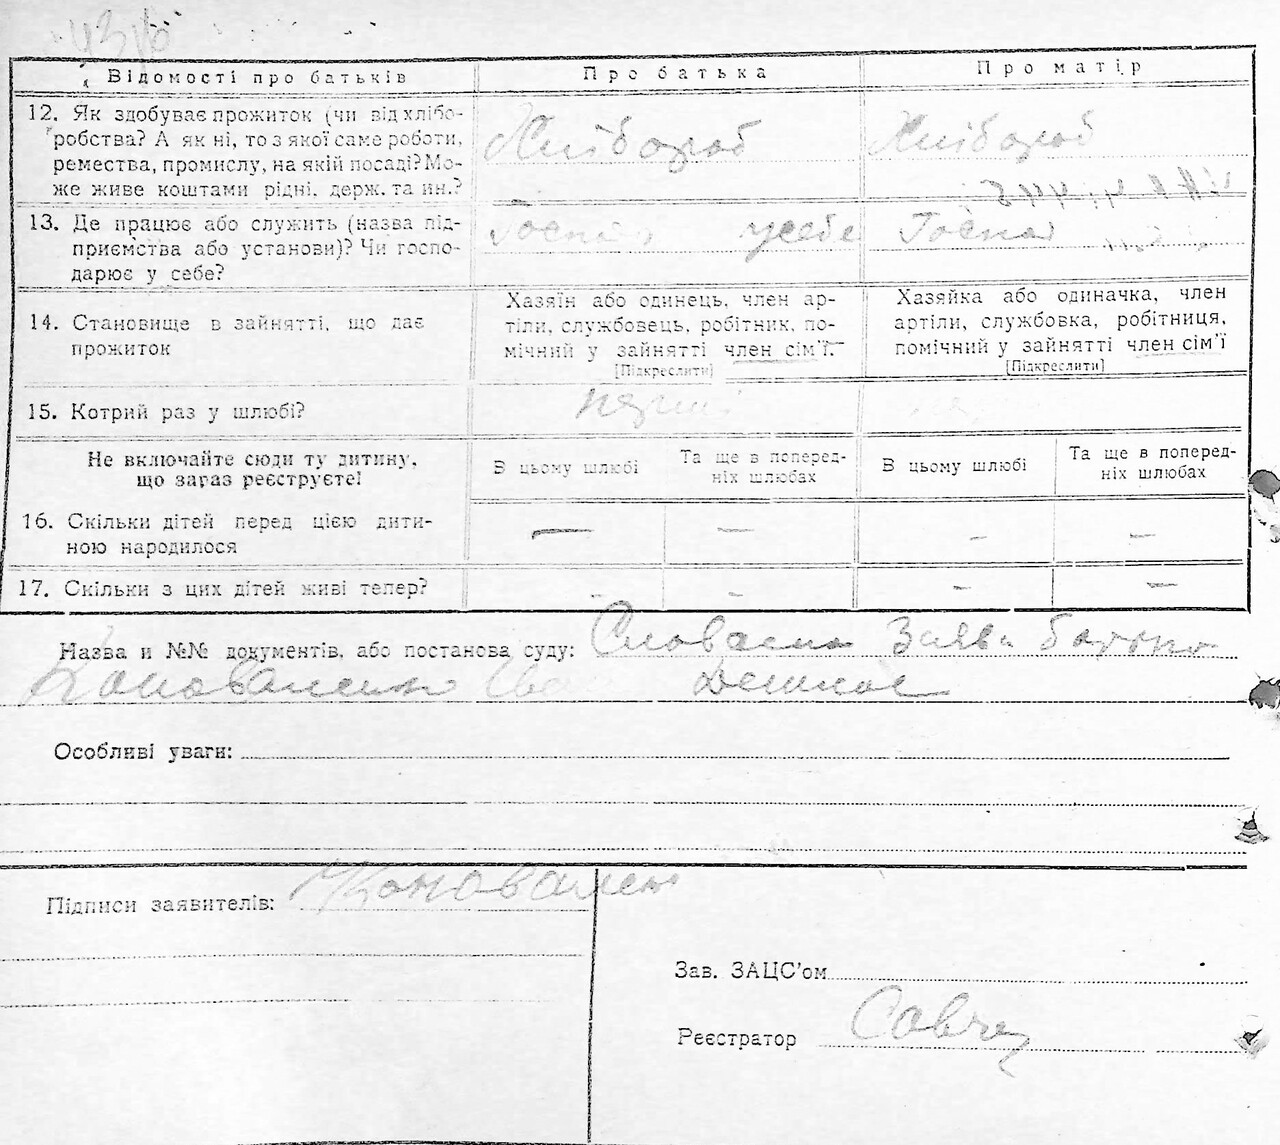 Відомості про батьків
Про батька
Про матір
12. Як здобуває прожиток (чи від хлібо-
робства? А як ні, то з якої саме роботи,
ремества, промислу, на якій посаді? Мо-
же живе коштами рідні, держ. та ин.?
Хлібороб
Хлібороб
13. Де працює або служить (назва під-
приємства або установи)? Чи госпо-
дарює у себе?
усебе
14. Становище в зайнятті, що дає
прожиток
Хазяїн або одинець, член ар-
тіли, службовець, робітник, по-
мічний у зайнятті член сім'ї.
[Підкреслити]
Хазяйка або одиначка, член
артіли, службовка, робітниця,
помічний у зайнятті член сім'ї
[Підкреслити]
15. Котрий раз у шлюбі?
Не включайте сюди ту дитину,
що зараз реєструєте!
В цьому шлюбі
Та ще в поперед-
ніх шлюбах
В цьому шлюбі
Та ще в поперед-
ніх шлюбах
16. Скільки дітей перед цією дити-
ною народилося
— — — —
17. Скільки з цих дітей живі тепер?
— — — —
Назва и №№ документів, або постанова суду: Словесна Заява батька
Коноваленко
Особливі уваги:
Підписи заявителів: Коновален
Зав. ЗАЦС'ом
Реєстратор